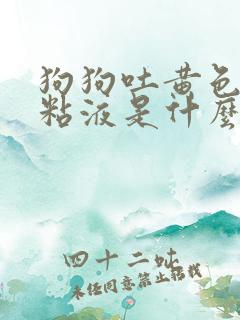 狗狗吐黄色
粘液是什么
四十二吠
未经同意禁止转载